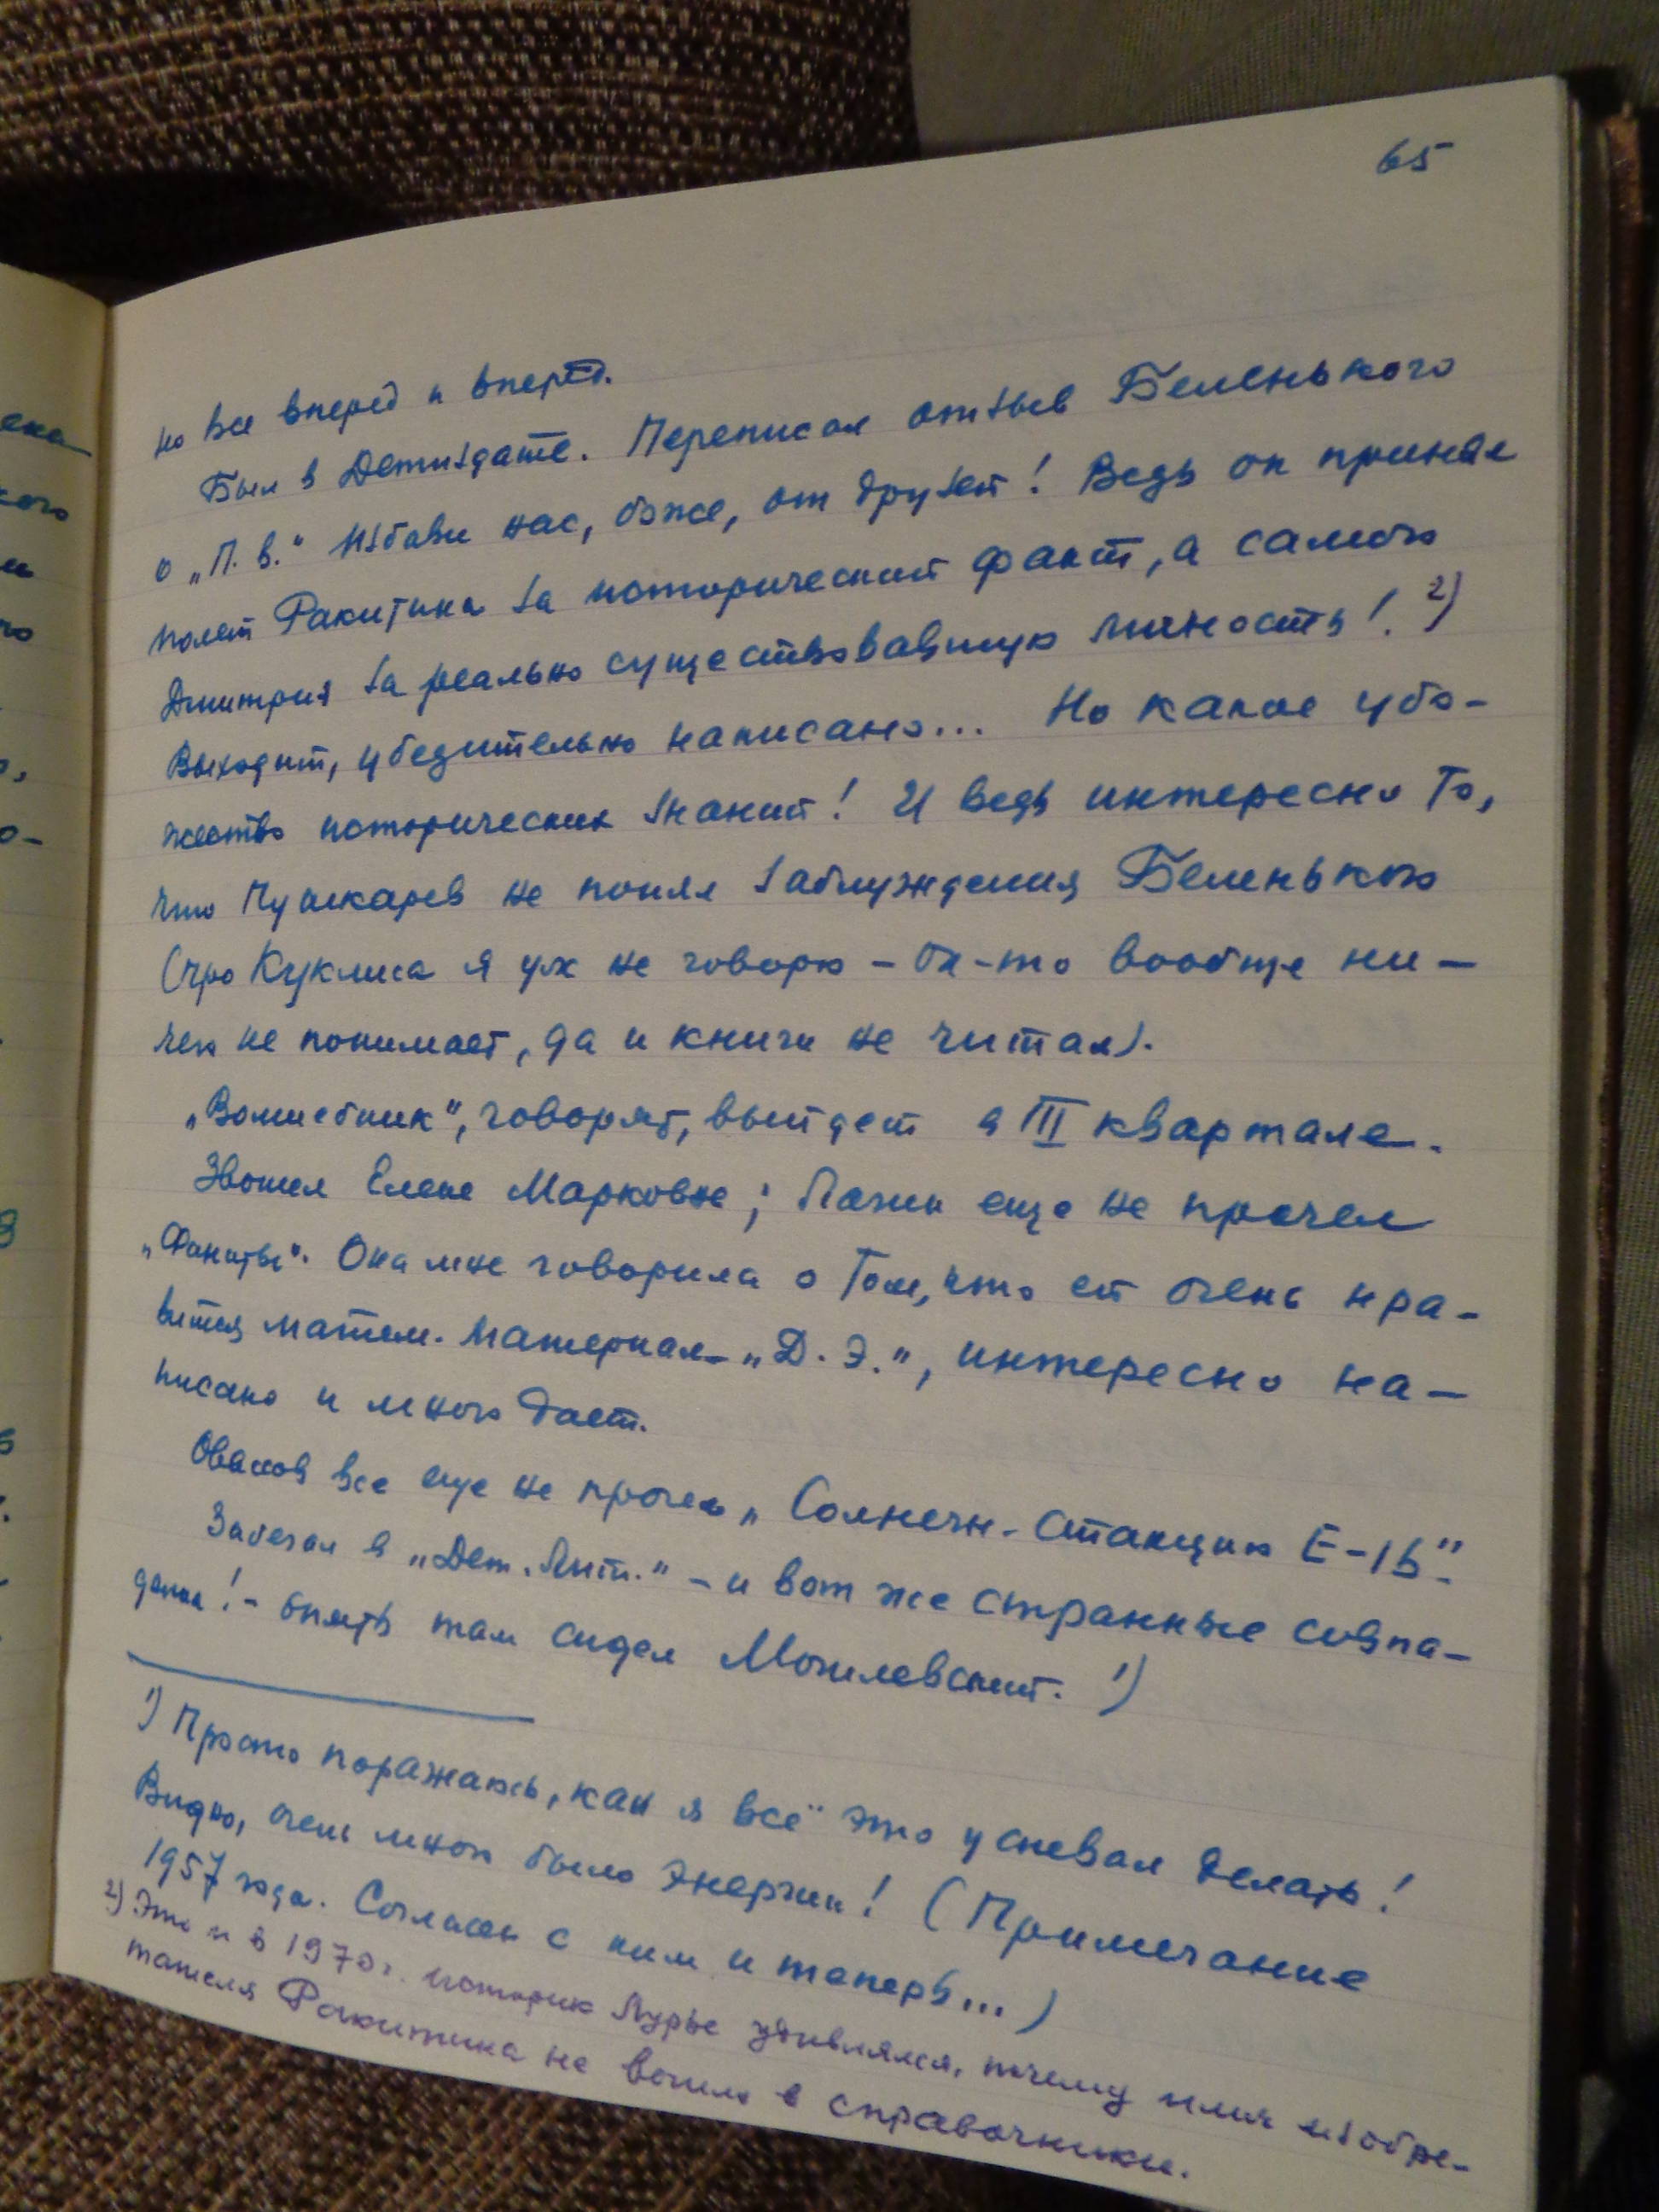 65
но все вперед и вперед.
Был в Детиздате. Переписал отзыв Беленького
о „П. В." Избави нас, боже, от друзей! Ведь он принял
полет Ракитина за исторический факт, а самого
Дмитрия за реально существовавшую личность! 2)
Выходит, убедительно написано... Но какое убо-
жество исторических знаний! И ведь интересно то,
что Пушкарев не понял заблуждения Беленького
(про Куклиса я уж не говорю – он-то вообще ни-
чего не понимает, да и книги не читал).
„Волшебник", говорят, выйдет в III квартале.
Звонил Елене Марковне; Лагин еще не прочел
„Фанаты". Она мне говорила о том, что ей очень нра-
вится матем. материал „Д. Э.", интересно на-
писано и много дает.
Овалов все еще не прочел „Солнечн. станцию Е-16".
Забегал в „Дет. Лит." – и вот же странные совпа-
денья! – опять там сидел Могилевский. 1)
1) Просто поражаюсь, как я всё это успевал делать!
Видно, очень много было энергии! (Примечание
1957 года. Согласен с ним и теперь...)
2) Это и в 1970 г. историк Лурье удивлялся, почему имя изобре-
тателя Ракитина не вошло в справочники.